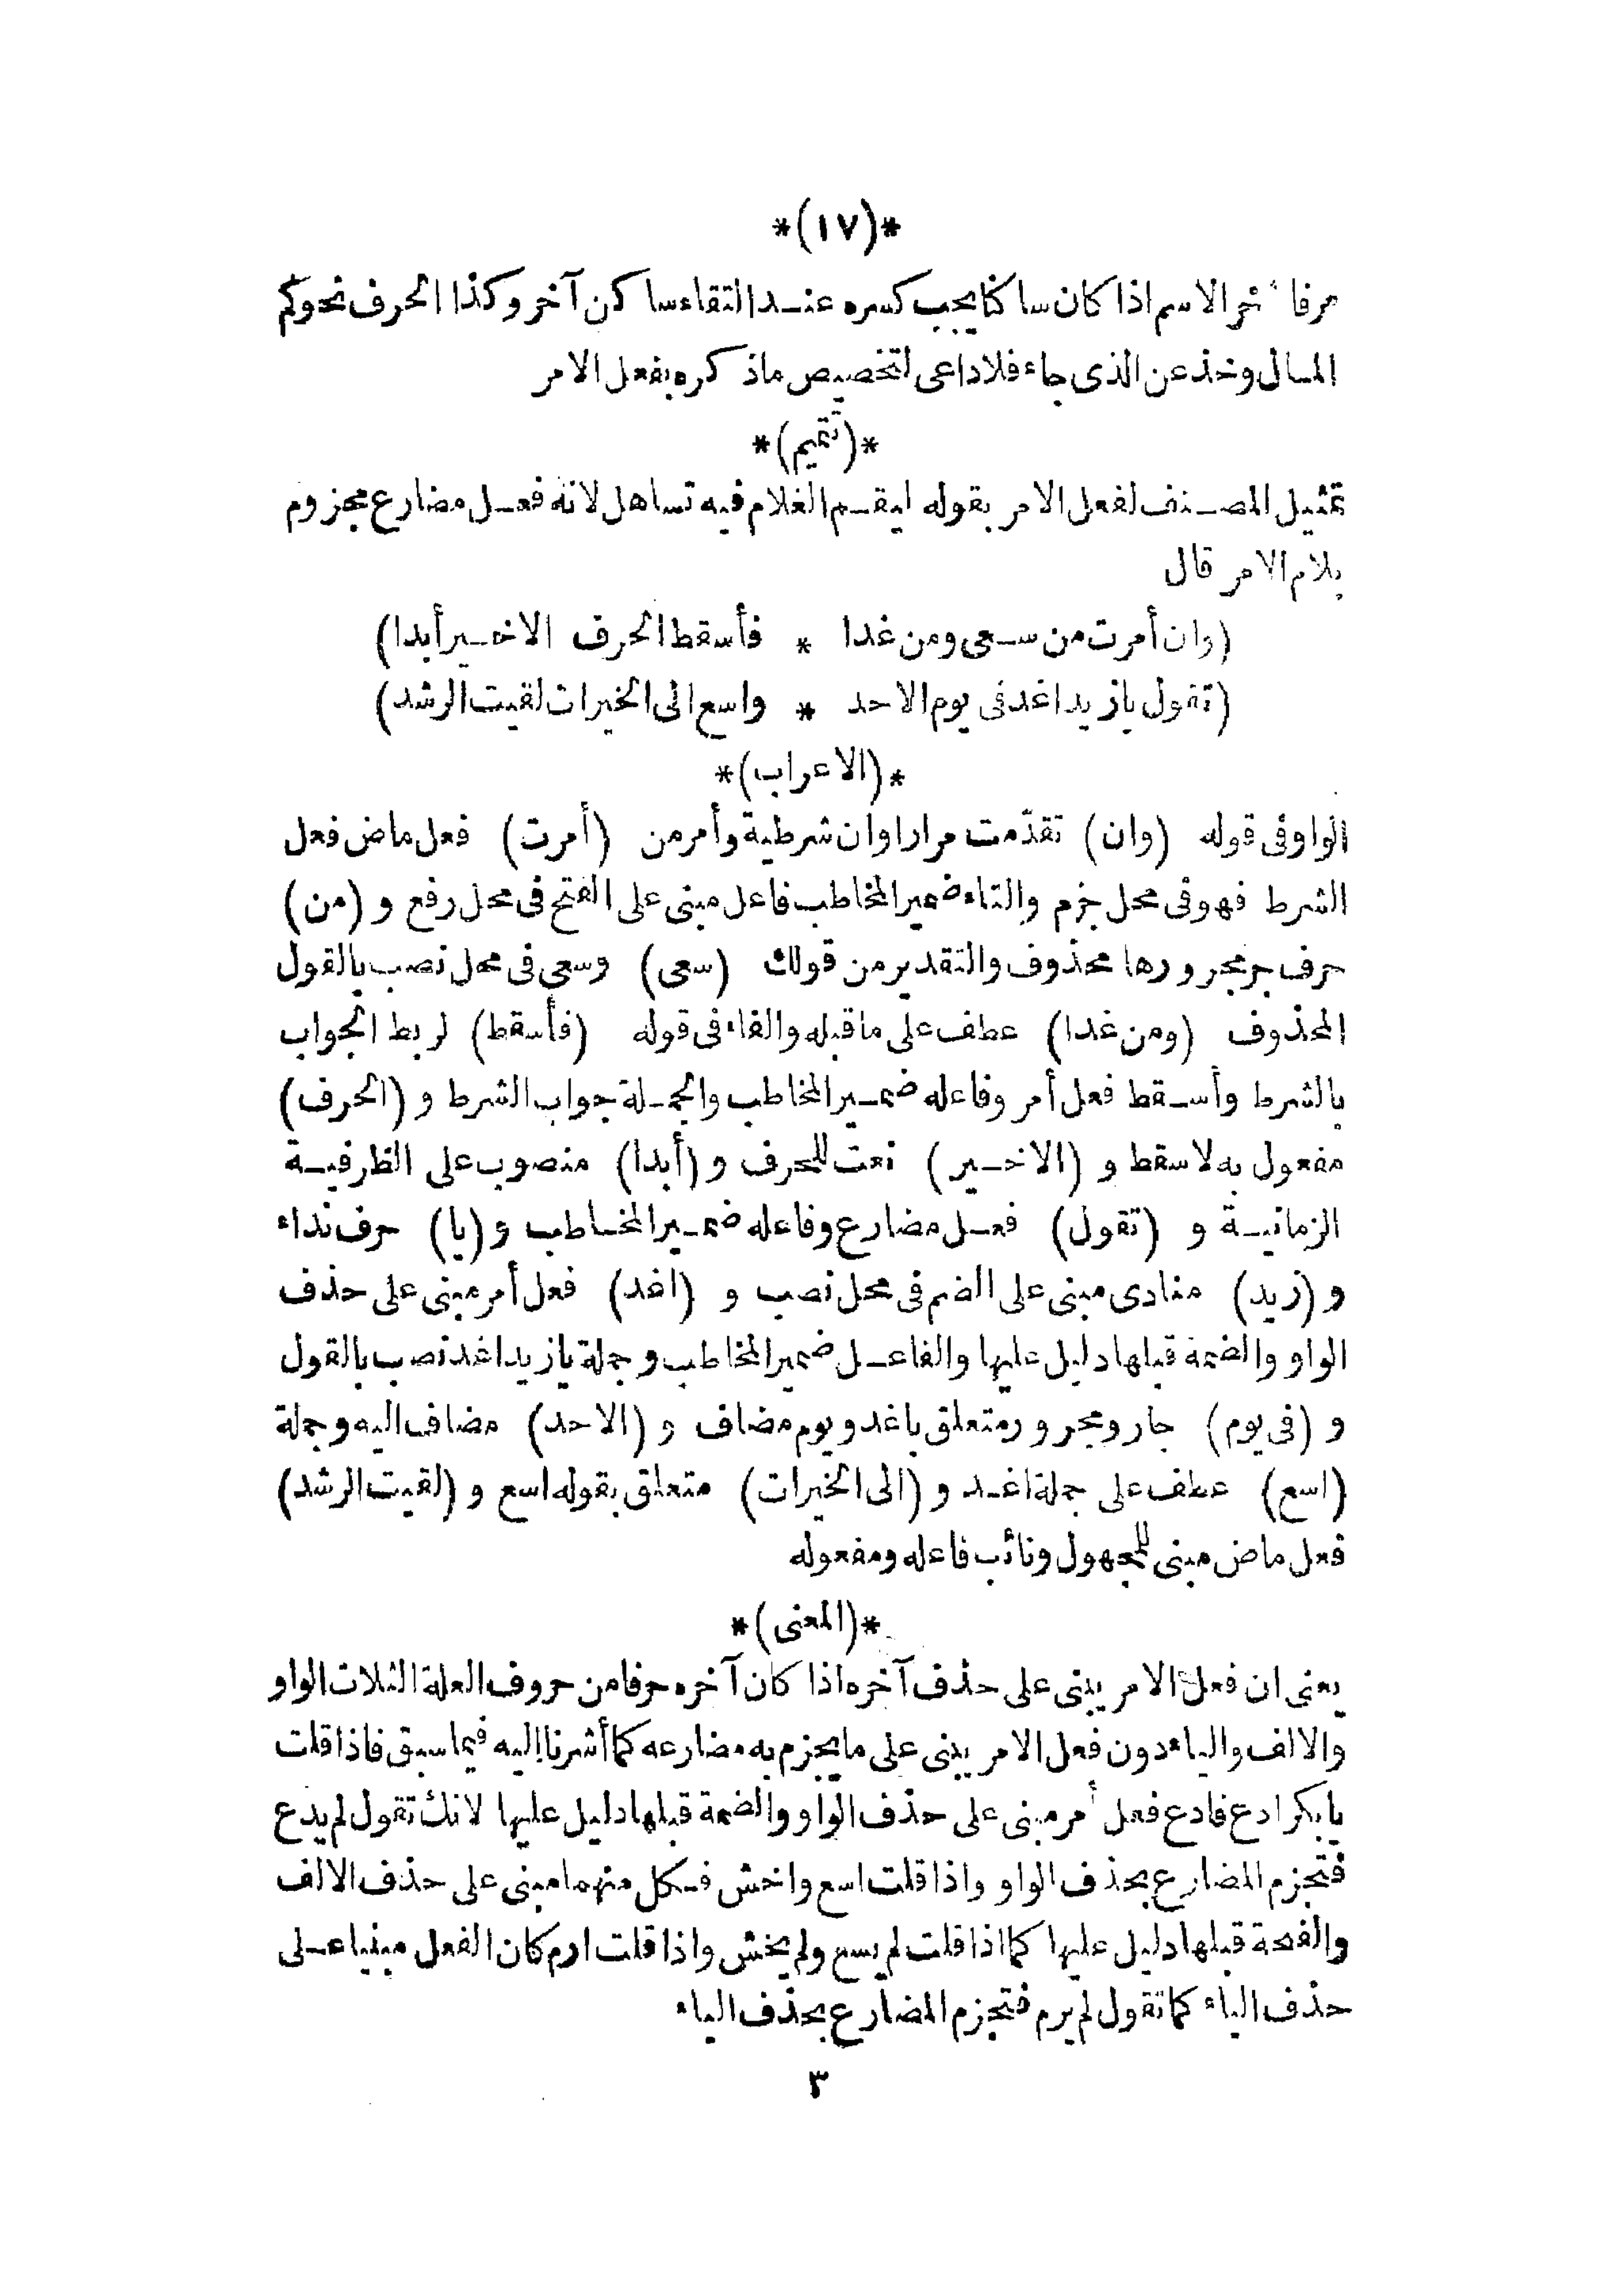 *(١٧)*
حرفا فآخر الاسم اذا كان ساكنا يجب كسره عند التقاء ساكن آخر وكذا الحرف نحوكم
المال وخذ عن الذى جاء فلا داعى لتخصيص ماذكره بفعل الامر
*(تتميم)*
تمثيل المصنف لفعل الامر بقوله ليقم الغلام فيه تساهل لانه فعل مضارع مجزوم
بلام الامر قال
(وان أمرت من سعى ومن غدا * فأسقط الحرف الاخير أبدا)
(تقول يازيد اغد فى يوم الاحد * واسع الى الخيرات لقيت الرشد)
*(الاعراب)*
الواو فى قوله (وان) تقدّمت مرارا وان شرطية وأمر من (أمرت) فعل ماض فعل
الشرط فهو فى محل جزم والتاء ضمير المخاطب فاعل مبنى على الفتح فى محل رفع و (من)
حرف جر مجرورها محذوف والتقدير من قولك (سعى) وسعى فى محل نصب بالقول
المحذوف (ومن غدا) عطف على ماقبله والفاء فى قوله (فأسقط) لربط الجواب
بالشرط وأسقط فعل أمر وفاعله ضمير المخاطب والجملة جواب الشرط و (الحرف)
مفعول به لاسقط و (الاخير) نعت للحرف و (أبدا) منصوب على الظرفية
الزمانية و (تقول) فعل مضارع وفاعله ضمير المخاطب و (يا) حرف نداء
و (زيد) منادى مبنى على الضم فى محل نصب و (اغد) فعل أمر مبنى على حذف
الواو والضمة قبلها دليل عليها والفاعل ضمير المخاطب وجملة يازيد اغد نصب بالقول
و (فى يوم) جار ومجرور متعلق باغد ويوم مضاف و (الاحد) مضاف اليه وجملة
(اسع) عطف على جملة اغد و (الى الخيرات) متعلق بقوله اسع و (لقيت الرشد)
فعل ماض مبنى للمجهول ونائب فاعله ومفعوله
*(المعنى)*
يعنى ان فعل الامر يبنى على حذف آخره اذا كان آخره حرفا من حروف العلة الثلاث الواو
والالف والياء دون فعل الامر يبنى على مايجزم به مضارعه كما أشرنا اليه فيما سبق فاذا قلت
يابكر ادع فادع فعل أمر مبنى على حذف الواو والضمة قبلها دليل عليها لانك تقول لم يدع
فتجزم المضارع بحذف الواو واذا قلت اسع واخش فكل منهما مبنى على حذف الالف
والفتحة قبلها دليل عليها كما اذا قلت لم يسع ولم يخش واذا قلت ارم كان الفعل مبنيا على
حذف الياء كما تقول لم يرم فتجزم المضارع بحذف الياء
٣